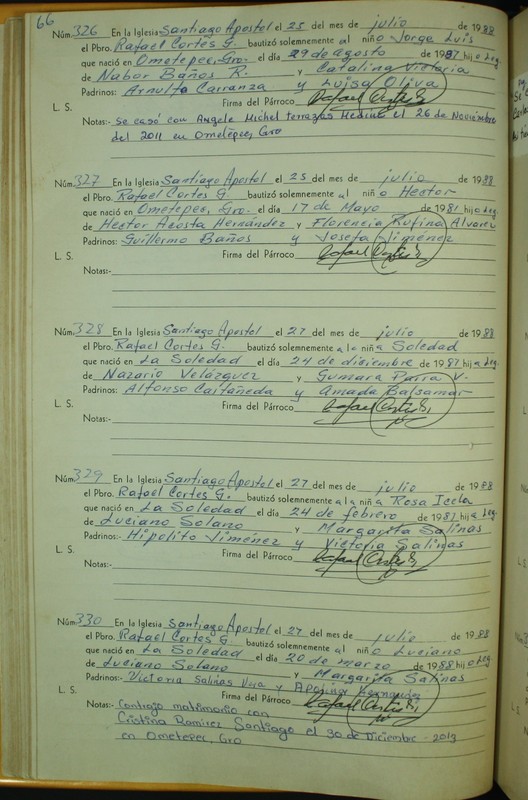 66
Núm. 326 En la Iglesia Santiago Apostel el 25 del mes de julio de 1988
el Pbro. Rafael Cortes G. bautizó solemnemente al niño Jorge Luis
que nació en Ometepec, Gro. el día 29 de agosto de 1987 hijo Leg.
de Nabor Baños R. y Catalina Victoria
Padrinos: Arnulfo Carranza y Luisa Oliva
Firma del Párroco Rafael Cortes G.
L. S.
Notas:- Se casó con Angele Michel terrazas Medina el 26 de Noviembre
del 2011 en Ometepec, Gro
Núm. 327 En la Iglesia Santiago Apostel el 25 del mes de julio de 1988
el Pbro. Rafael Cortes G. bautizó solemnemente al niño Hector
que nació en Ometepec, Gro. el día 17 de Mayo de 1981 hijo Leg
de Hector Acosta Hernández y Florencia Rufina Alvarez
Padrinos: Guillermo Baños y Josefa Jiménez
L. S. Firma del Párroco Rafael Cortes G.
Notas:-
Núm. 328 En la Iglesia Santiago Apostel el 27 del mes de julio de 1988
el Pbro. Rafael Cortes G. bautizó solemnemente a la niña Soledad
que nació en La Soledad el día 24 de diciembre de 1987 hija Leg.
de Nazario Velázquez y Gumara Parra V.
Padrinos: Alfonso Castañeda y Amada Balsamar
L. S. Firma del Párroco Rafael Cortes G.
Notas:-
Núm. 329 En la Iglesia Santiago Apostel el 27 del mes de julio de 1988
el Pbro. Rafael Cortes G. bautizó solemnemente a la niña Rosa Icela
que nació en La Soledad el día 24 de febrero de 1987 hija Leg
de Luciano Solano y Margarita Salinas
Padrinos:- Hipolito Jiménez y Victoria Salinas
L. S. Firma del Párroco Rafael Cortes G.
Notas:-
Núm. 330 En la Iglesia Santiago Apostel el 27 del mes de julio de 1988
el Pbro. Rafael Cortes G. bautizó solemnemente al niño Luciano
que nació en La Soledad el día 20 de marzo de 1988 hijo Leg
de Luciano Solano y Margarita Salinas
Padrinos:- Victoria Salinas Vera y Hernandez
L. S. Firma del Párroco Rafael Cortes G.
Notas:- Contrajo matrimonio con
Cristina Ramirez Santiago el 30 de Diciembre - 2013
en Ometepec, Gro